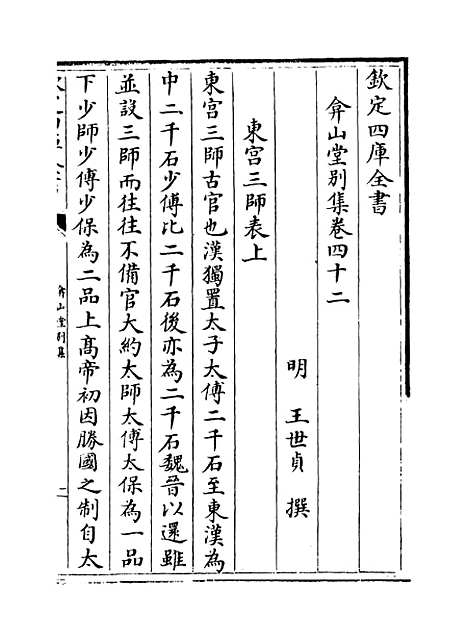 欽定四庫全書
弇山堂別集卷四十二
明 王世貞 撰
東宫三師表上
東宫三師古官也漢獨置太子太傅二千石至東漢為
中二千石少傅比二千石後亦為二千石魏晉以還雖
並設三師而往往不備官大約太師太傅太保為一品
下少師少傅少保為二品上髙帝初因勝國之制自太
弇山堂別集